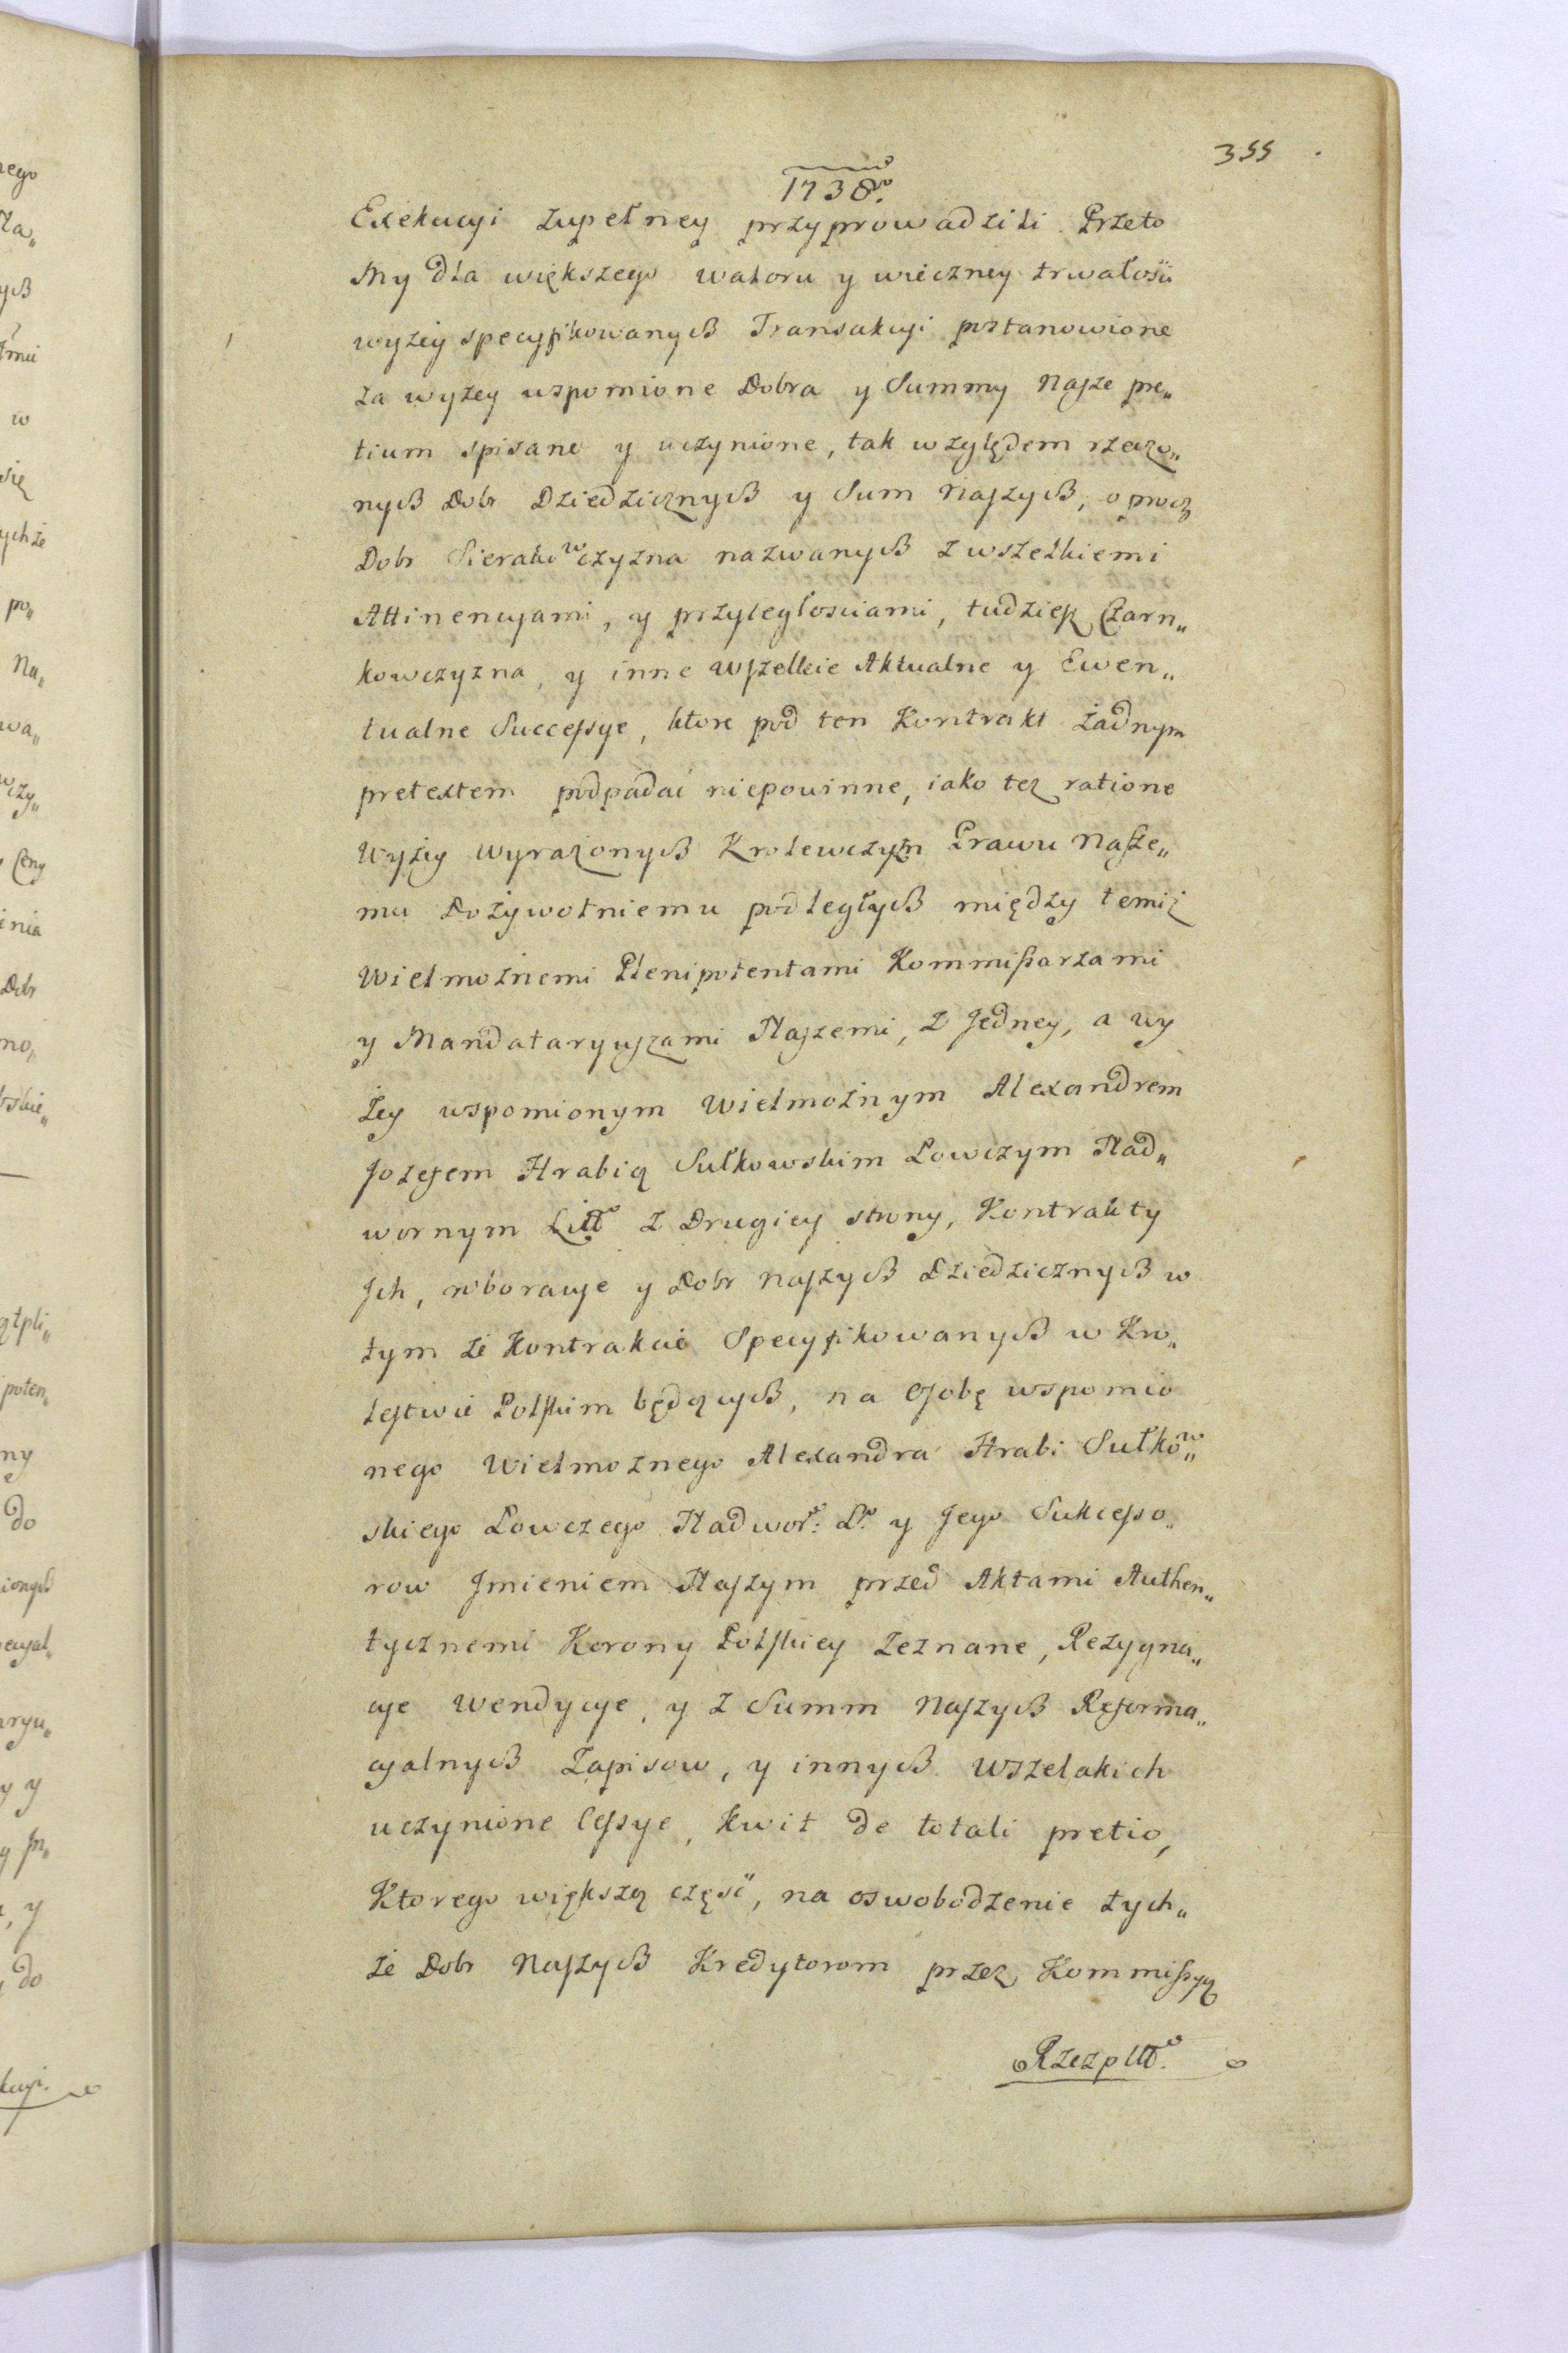 355
1738º.
Exekucyi zupełney przyprowadzili. Przeto
My dla większego waloru y wieczney trwałości
wyżey specyfikowanych Transakcyi postanowione
za wyżey uspomione Dobra y Summy Nasze pre„
tium spisane y uczynione, tak względem rzeczo„
nych Dobr Dziedzicznych y Sum Naszych, oprocz
Dobr Sierakowczyzna nazwanych z wszelkiemi
Attinencyami, y przyległosciami, tudziesz Czarn„
kowczyzna, y inne wszelkie Aktualne y Ewen„
tualne Successye, ktore pod ten Kontrakt żadnym
pretextem podpadać niepowinne, iako tez ratione
Wyżey wyrażonych Krolewczyzn Prawu Nasze„
mu Dożywotniemu podległych między temiż
Wielmożnemi Plenipotentami Kommissarzami
y Mandataryuszami Naszemi, z Jedney, a wy
żey uspomionym Wielmożnym Alexandrem
Jozefem Hrabią Sułkowskim Łowczym Nad„
wornym Litt° z Drugiey strony, Kontrakty
Jch, roboracye y Dobr Naszych Dziedzicznych w
tym że Kontrakcie Specyfikowanych w Kro„
lestwie Polskim będących, na Osobę wspomio
nego Wielmoznego Alexandra Hrabi Sułkow„
skiego Łowczego Nadwor°: L°. y Jego Sukcesso„
row Jmieniem Naszym przed Aktami Authen„
tycznemi Korony Polskiey zeznane, Rezygna„
cye Wendycye, y z Summ Naszych Reforma„
cyalnych Zapisow, y innych wszelakich
uczynione Cessye, Kwit de totali pretio,
Ktorego większą część, na oswobodzenie tych„
że Dobr Naszych Kredytorom przez Kommissyą
Rzezpltt°.